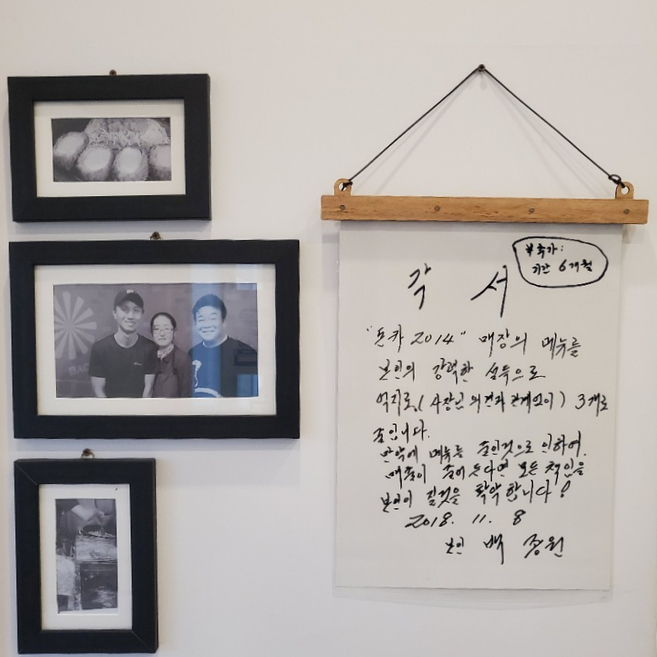 각 서
*추가:
기간 6개월
"돈카 2014" 매장의 메뉴를
본인의 강력한 설득으로
억지로, (사장님 의견과 관계없이) 3개로
줄입니다.
만약에 메뉴를 줄인것으로 인하여,
매출이 줄어든다면 모든 책임을
본인이 질것을 확약합니다!
2018. 11. 8
본인 백종원